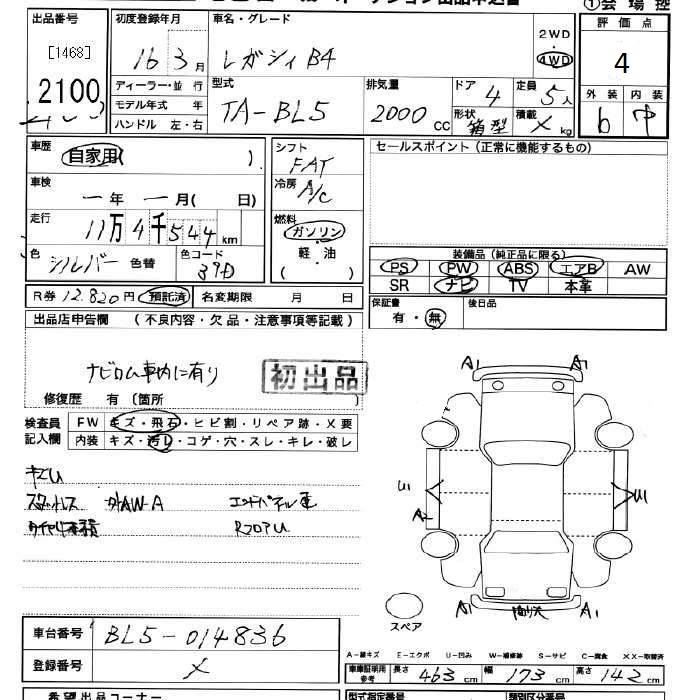 出品番号 初度登録年月 車名・グレード ①会場控
[1468] 16 3月 レガシィ B4 2WD 4WD 評価点
2100 4
ディーラー・並行 型式 排気量 ドア 4 定員 5人 外装 内装
モデル年式 年 TA-BL5 2000cc 形状 箱型 積載 ✓kg b 中
ハンドル 左・右
車歴 自家用( ) シフト FAT セールスポイント(正常に機能するもの)
車検 ー年 ー月( 日) 冷房 A/C
走行 11万4千544km 燃料 ガソリン
軽・油
( )
色 シルバー 色替 色コード 39D
装備品(純正品に限る)
PS PW ABS エアB AW
SR ナビ TV 本革
R券 12,820円 預託済 名変期限 月 日
保証書 有・無 後日品
出品店申告欄 (不良内容・欠品・注意事項等記載)
ナビロム車内に有り 初出品
修復歴 有〔箇所 〕
検査員記入欄 FW キズ・飛石・ヒビ割・リペア跡・X要
内装 キズ・汚レ・コゲ・穴・スレ・キレ・破レ
A1 A1
キズU
スタットレス 外AW-A
RフロアU
U1 U1
A2
A1 A1
スペア
車台番号 BL5-014836
登録番号
A-線キズ E-エクボ U-凹み W-補修跡 S-サビ C-腐食 XX-取替済
車庫証明用参考 長さ 463cm 幅 173cm 高さ 142cm
希望出品コーナー 型式指定番号 類別区分番号